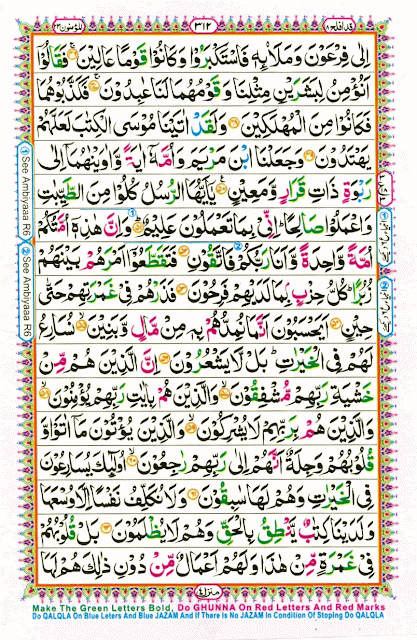 المؤمنون ٢٣
٣١٢
قد افلح ١٨
اِلٰى فِرْعَوْنَ وَمَلَا۟ئِهٖ فَاسْتَكْبَرُوْا وَكَانُوْا قَوْمًا عَالِيْنَ ۝٤٦ فَقَالُوْٓا
اَنُؤْمِنُ لِبَشَرَيْنِ مِثْلِنَا وَقَوْمُهُمَا لَنَا عٰبِدُوْنَ ۝٤٧ فَكَذَّبُوْهُمَا
فَكَانُوْا مِنَ الْمُهْلَكِيْنَ ۝٤٨ وَلَقَدْ اٰتَيْنَا مُوْسَى الْكِتٰبَ لَعَلَّهُمْ
يَهْتَدُوْنَ ۝٤٩ وَجَعَلْنَا ابْنَ مَرْيَمَ وَاُمَّهٗٓ اٰيَةً وَّاٰوَيْنٰهُمَآ اِلٰى
رَبْوَةٍ ذَاتِ قَرَارٍ وَّمَعِيْنٍ ۝٥٠ يٰٓاَيُّهَا الرُّسُلُ كُلُوْا مِنَ الطَّيِّبٰتِ
وَاعْمَلُوْا صَالِحًا ؕ اِنِّىْ بِمَا تَعْمَلُوْنَ عَلِيْمٌ ۝٥١ وَاِنَّ هٰذِهٖٓ اُمَّتُكُمْ
اُمَّةً وَّاحِدَةً وَّاَنَا رَبُّكُمْ فَاتَّقُوْنِ ۝٥٢ فَتَقَطَّعُوْٓا اَمْرَهُمْ بَيْنَهُمْ
زُبُرًا ؕ كُلُّ حِزْبٍۭ بِمَا لَدَيْهِمْ فَرِحُوْنَ ۝٥٣ فَذَرْهُمْ فِىْ غَمْرَتِهِمْ حَتّٰى
حِيْنٍ ۝٥٤ اَيَحْسَبُوْنَ اَنَّمَا نُمِدُّهُمْ بِهٖ مِنْ مَّالٍ وَّبَنِيْنَ ۝٥٥ نُسَارِعُ
لَهُمْ فِى الْخَيْرٰتِ ؕ بَلْ لَّا يَشْعُرُوْنَ ۝٥٦ اِنَّ الَّذِيْنَ هُمْ مِّنْ
خَشْيَةِ رَبِّهِمْ مُّشْفِقُوْنَ ۝٥٧ وَالَّذِيْنَ هُمْ بِاٰيٰتِ رَبِّهِمْ يُؤْمِنُوْنَ ۝٥٨
وَالَّذِيْنَ هُمْ بِرَبِّهِمْ لَا يُشْرِكُوْنَ ۝٥٩ وَالَّذِيْنَ يُؤْتُوْنَ مَآ اٰتَوْا وَّ
قُلُوْبُهُمْ وَجِلَةٌ اَنَّهُمْ اِلٰى رَبِّهِمْ رٰجِعُوْنَ ۝٦٠ اُولٰٓئِكَ يُسَارِعُوْنَ
فِى الْخَيْرٰتِ وَهُمْ لَهَا سٰبِقُوْنَ ۝٦١ وَلَا نُكَلِّفُ نَفْسًا اِلَّا وُسْعَهَا
وَلَدَيْنَا كِتٰبٌ يَّنْطِقُ بِالْحَقِّ وَهُمْ لَا يُظْلَمُوْنَ ۝٦٢ بَلْ قُلُوْبُهُمْ
فِىْ غَمْرَةٍ مِّنْ هٰذَا وَلَهُمْ اَعْمَالٌ مِّنْ دُوْنِ ذٰلِكَ هُمْ لَهَا
① See Ambiyaaa R6
② See Ambiyaaa R6
منزل ٤
Make The Green Letters Bold, Do GHUNNA On Red Letters And Red Marks
Do QALQLA On Blue Leters And Blue JAZAM And If There Is No JAZAM In Condition Of Stoping Do QALQLA